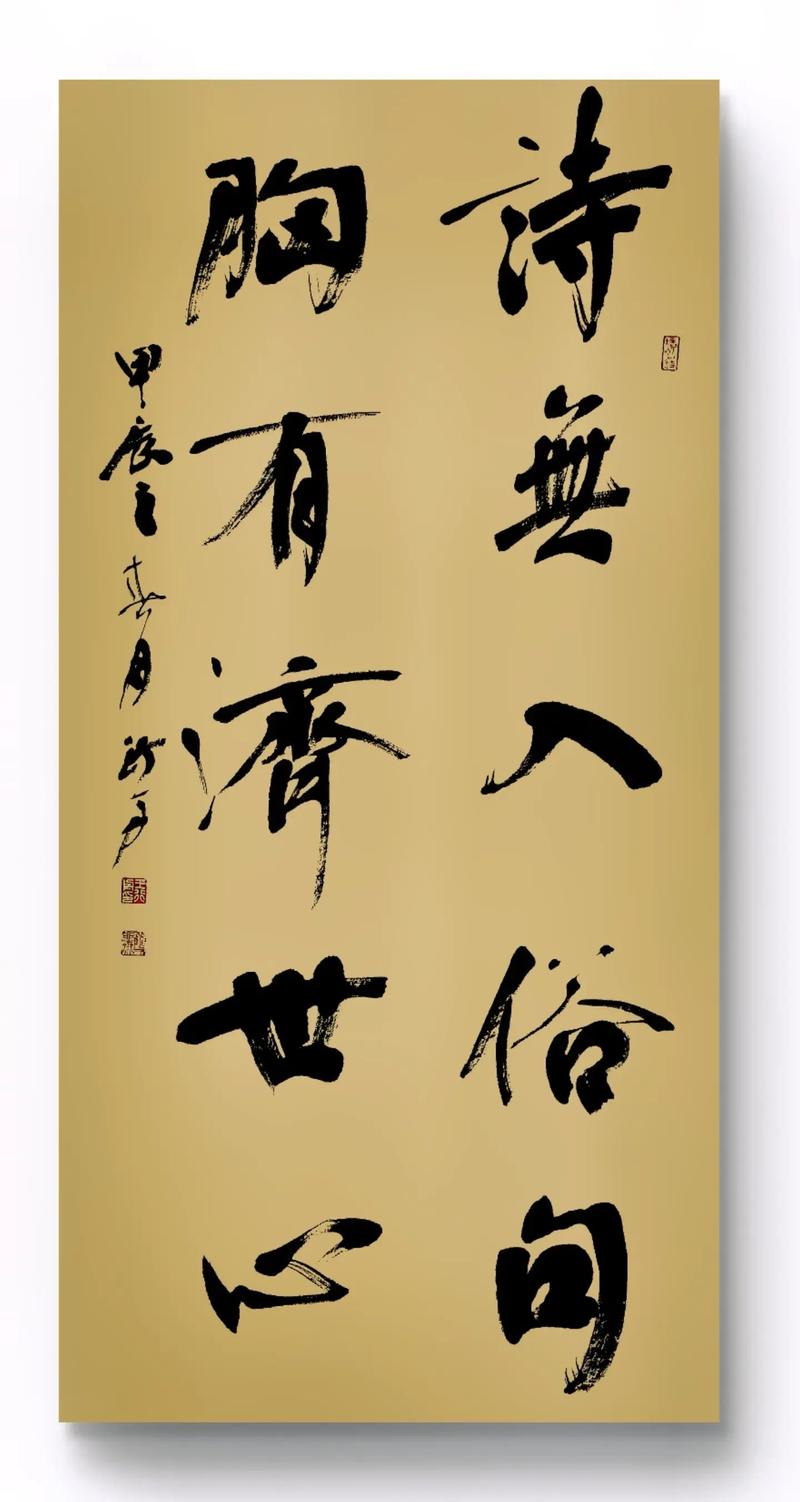 詩無入俗句
胸有濟世心
甲辰之春月